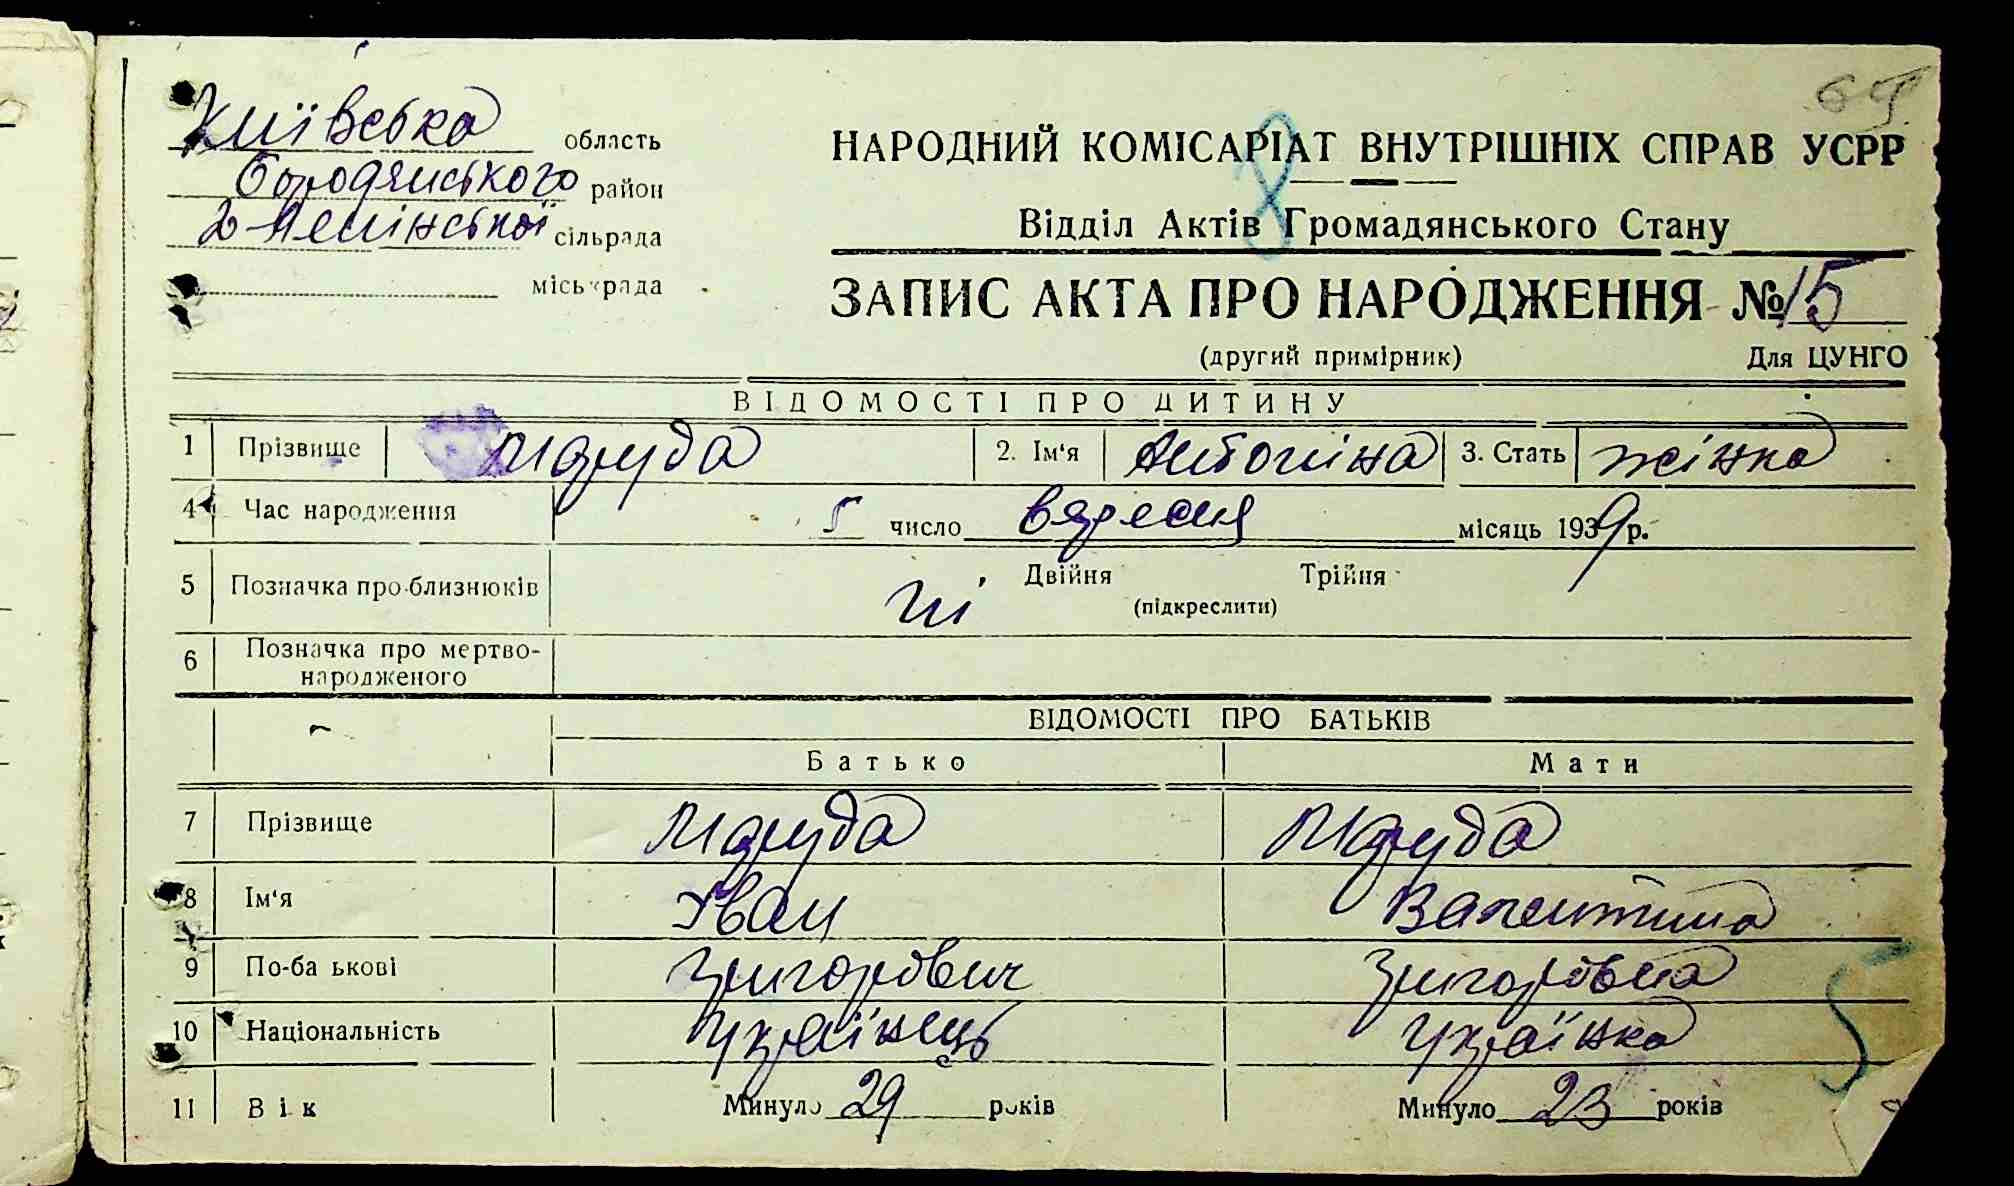 65
Київська область
Бородянського район
2-Лесінської сільрада
міськрада
НАРОДНИЙ КОМІСАРІАТ ВНУТРІШНІХ СПРАВ УСРР
8
Відділ Актів Громадянського Стану
ЗАПИС АКТА ПРО НАРОДЖЕННЯ № 15
(другий примірник) Для ЦУНГО
ВІДОМОСТІ ПРО ДИТИНУ
1 Прізвище 2. Ім'я Антоніна 3. Стать жінка
4 Час народження 5 число вересня місяць 1939 р.
5 Позначка про близнюків ні Двійня Трійня
(підкреслити)
6 Позначка про мертво-
народженого
ВІДОМОСТІ ПРО БАТЬКІВ
Батько Мати
7 Прізвище
8 Ім'я Іван Валентина
9 По-ба ькові Григорович Григоровна
10 Національність Українець Українка
5
11 Вік Минуло 29 років Минуло 23 років